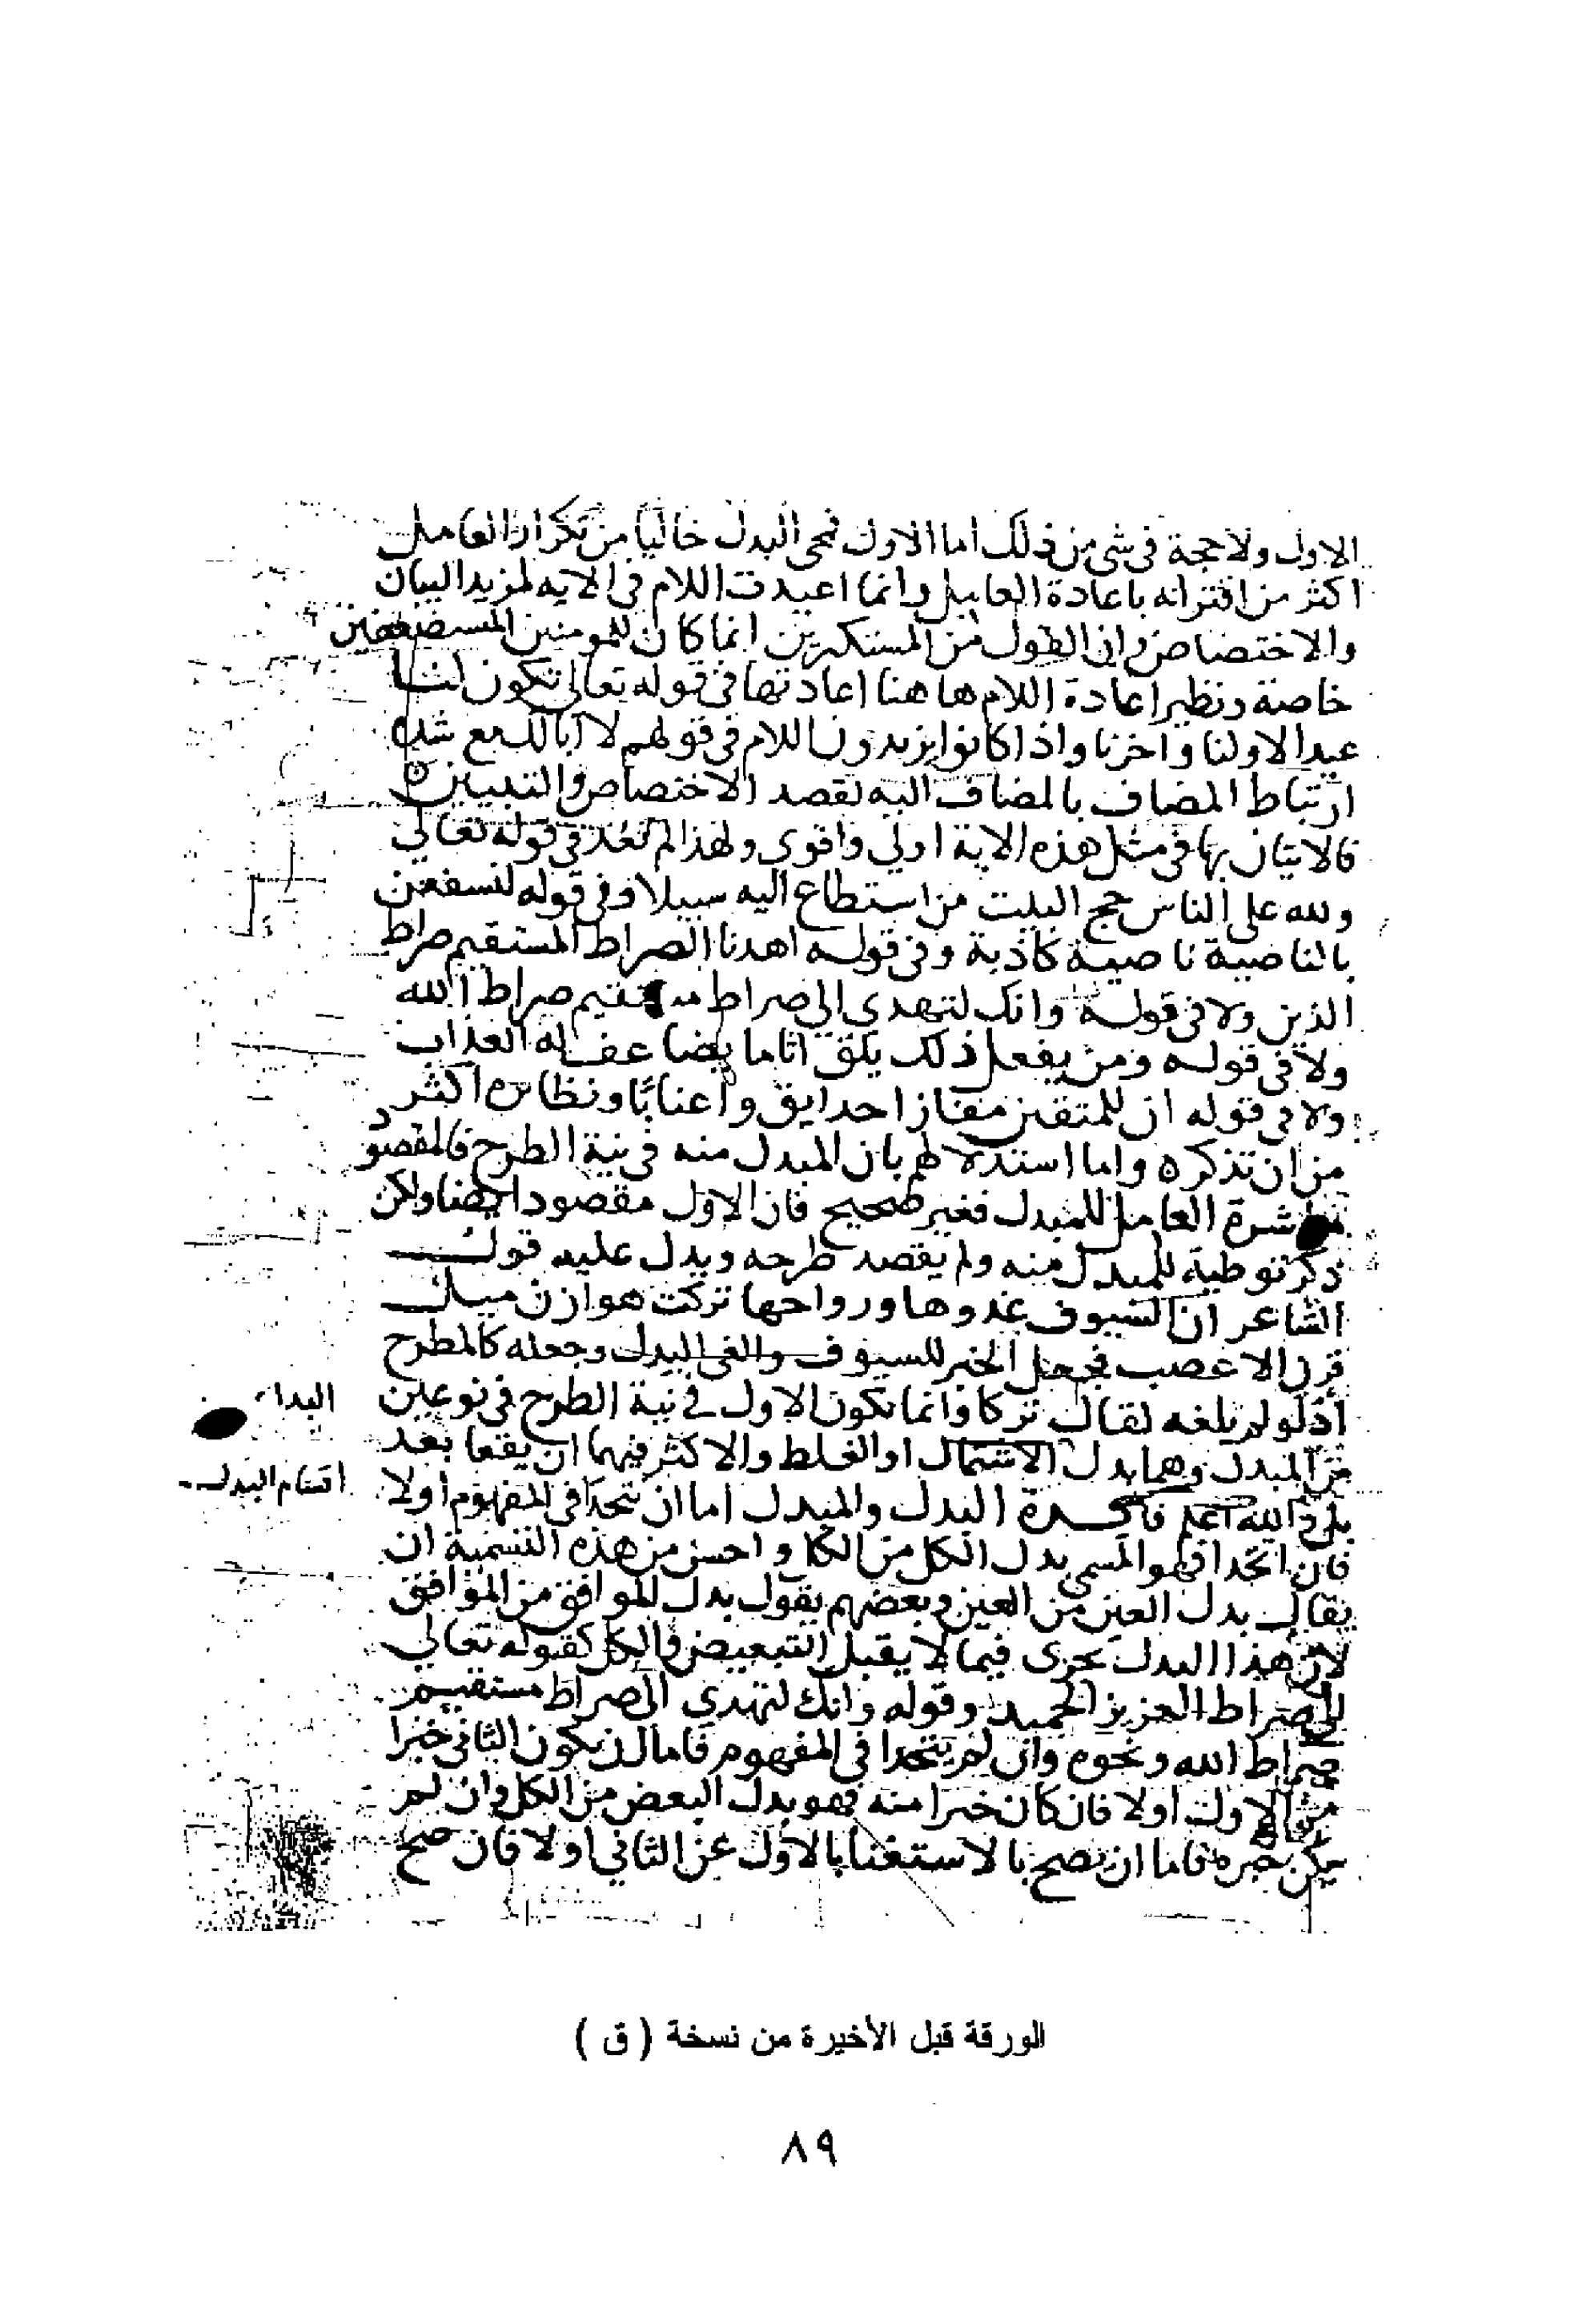 الاول ولا حجة فى شى من ذلك اما الاول فمجى البدل خاليا من تكرار العامل
اكثر من اقترانه باعادة العامل وانما اعيدت اللام فى الايه لمزيد البيان
والاختصاص وان القول من المستكبرين انما كان للمومنين المستضعفين
خاصة ونظير اعادة اللام ها هنا اعادتها فى قوله تعالى تكون لنا
عيدا لاولنا واخرنا واذا كانوا يزيدون اللام فى قولهم لا ابالك مع شدة
ارتباط المضاف بالمضاف اليه لقصد الاختصاص والتبيين
فالاتيان بها فى مثل هذه الاية اولى واقوى ولهذا لم تعد فى قوله تعالى
ولله على الناس حج البيت من استطاع اليه سبيلا وفى قوله لنسفعن
بالناصية ناصية كاذبة وفى قوله اهدنا الصراط المستقيم صراط
الذين ولا فى قوله وانك لتهدى الى صراط مستقيم صراط الله
ولا فى قوله ومن يفعل ذلك يلق اثاما يضاعف له العذاب
ولا فى قوله ان للمتقين مفازا حدايق واعنابا ونظايره اكثر
من ان تذكره واما استدلالهم بان المبدل منه فى نية الطرح فالمقصود
مباشرة العامل للمبدل فغير صحيح فان الاول مقصود ايضا ولكن
ذكر توطية للمبدل منه ولم يقصد طرحه ويدل عليه قول
الشاعر ان السيوف غدوها ورواحها تركت هوازن مثل
قرن الاعصب فجعل الخبر للسيوف والغى البدل وجعله كالمطرح
اذ لو لم يلغه لقال تركا وانما يكون الاول فى نية الطرح فى نوعين
البدا
من المبدل وهما بدل الاشتمال او الغلط والاكثر فيهما ان يقعا بعد
بل والله اعلم فائدة البدل والمبدل اما ان يتحدا فى المفهوم اولا
اقسام البدل
فان اتحدا فهو المسمى بدل الكل من الكل واحسن من هذه التسمية ان
يقال بدل العين من العين وبعضهم يقول بدل الموافق من الموافق
لان هذا البدل يجرى فيما لا يقبل التبعيض والكل كقوله تعالى
الى صراط العزيز الحميد وقوله وانك لتهدي الى صراط مستقيم
صراط الله ونحوه وان لم يتحدا فى المفهوم فاما ان يكون الثانى جزا
من الاول اولا فان كان جزا منه فهو بدل البعض من الكل وان لم
يكن جزه فاما ان يصح الاستغنا بالاول عن الثاني اولا فان صح
الورقة قبل الأخيرة من نسخة ( ق )
٨٩